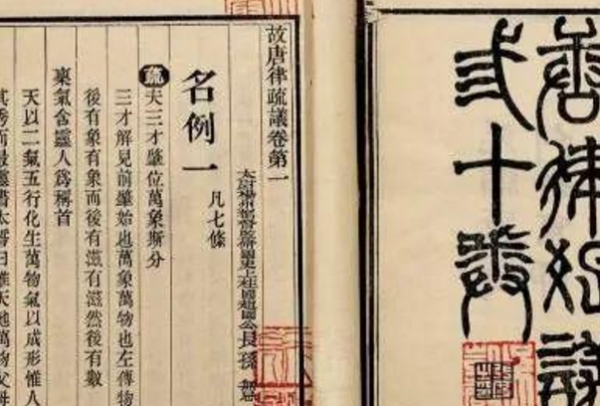 唐律疏議
弎十卷
故唐律疏議卷第一
太尉揚州都督監修國史上柱國趙國公長孫無
名例一 凡七條
疏 夫三才肇位萬象斯分
三才解見前肇始也萬象萬物也左傳物
後有象有象而後有滋有滋然後有數
稟氣含靈人爲稱首
天以二氣五行化生萬物氣以成形惟人
其秀而最靈書太誓曰惟天地萬物父母